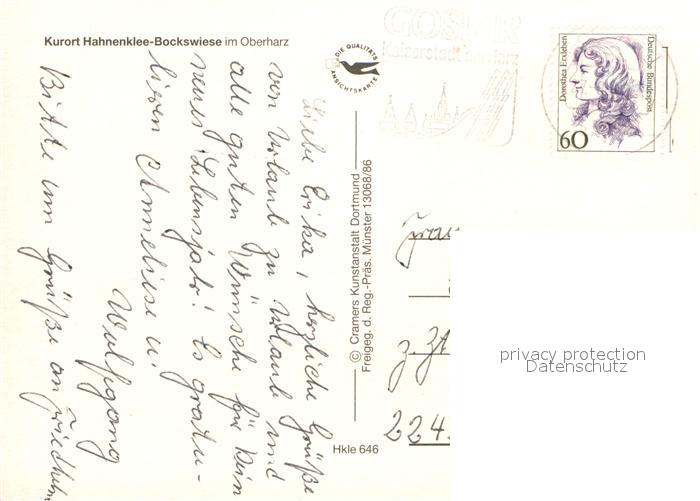 Kurort Hahnenklee-Bockswiese im Oberharz
DIE QUALITÄTS
ANSICHTSKARTE
GOSLAR
Kaiserstadt am Harz
Dorothea Erxleben
Deutsche Bundespost
60
Liebe Erika, herzliche Grüße
von Urlaub zu Urlaub und
alle guten Wünsche für Dein
neues Lebensjahr! Es gratu-
lieren Anneliese u.
Wolfgang
Bitte um Grüße an Friedhelm
© Cramers Kunstanstalt Dortmund
Freigeg. d. Reg.-Präs. Münster 13068/86
Hkle 646
Frau
z. Zt.
224
privacy protection
Datenschutz